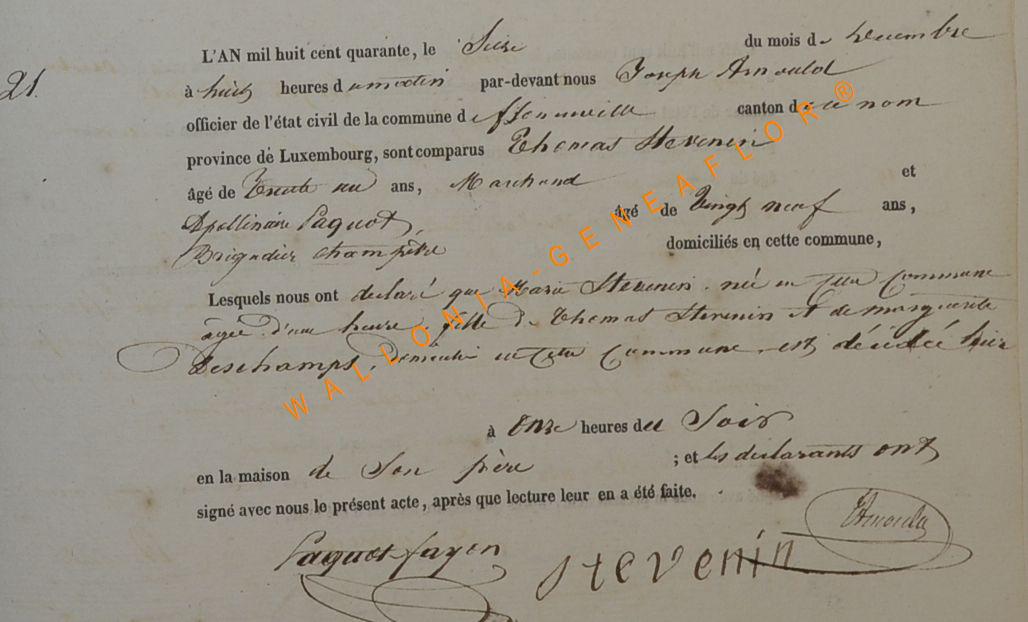 21.
L'AN mil huit cent quarante, le Seize du mois de Decembre
à huit heures du matin par-devant nous Joseph Arnould
officier de l'état civil de la commune d'Etenneville canton de ce nom
province de Luxembourg, sont comparus Thomas Stevenin
âgé de Trente un ans, Marchand et
Apollinaire Paquot, âgé de Vingt neuf ans,
Brigadier champêtre domiciliés en cette commune,
Lesquels nous ont declaré que Marie Stevenin. née en cette Commune
agée d'une heure, fille de Thomas Stevenin et de marguerite
Deschamps, en cette Commune, est décédée hier
à Onze heures du Soir
en la maison de Son père ; et les declarants ont
signé avec nous le présent acte, après que lecture leur en a été faite.
Paquot Stevenin Arnould
WALLONIA-GENEAFLOR ®